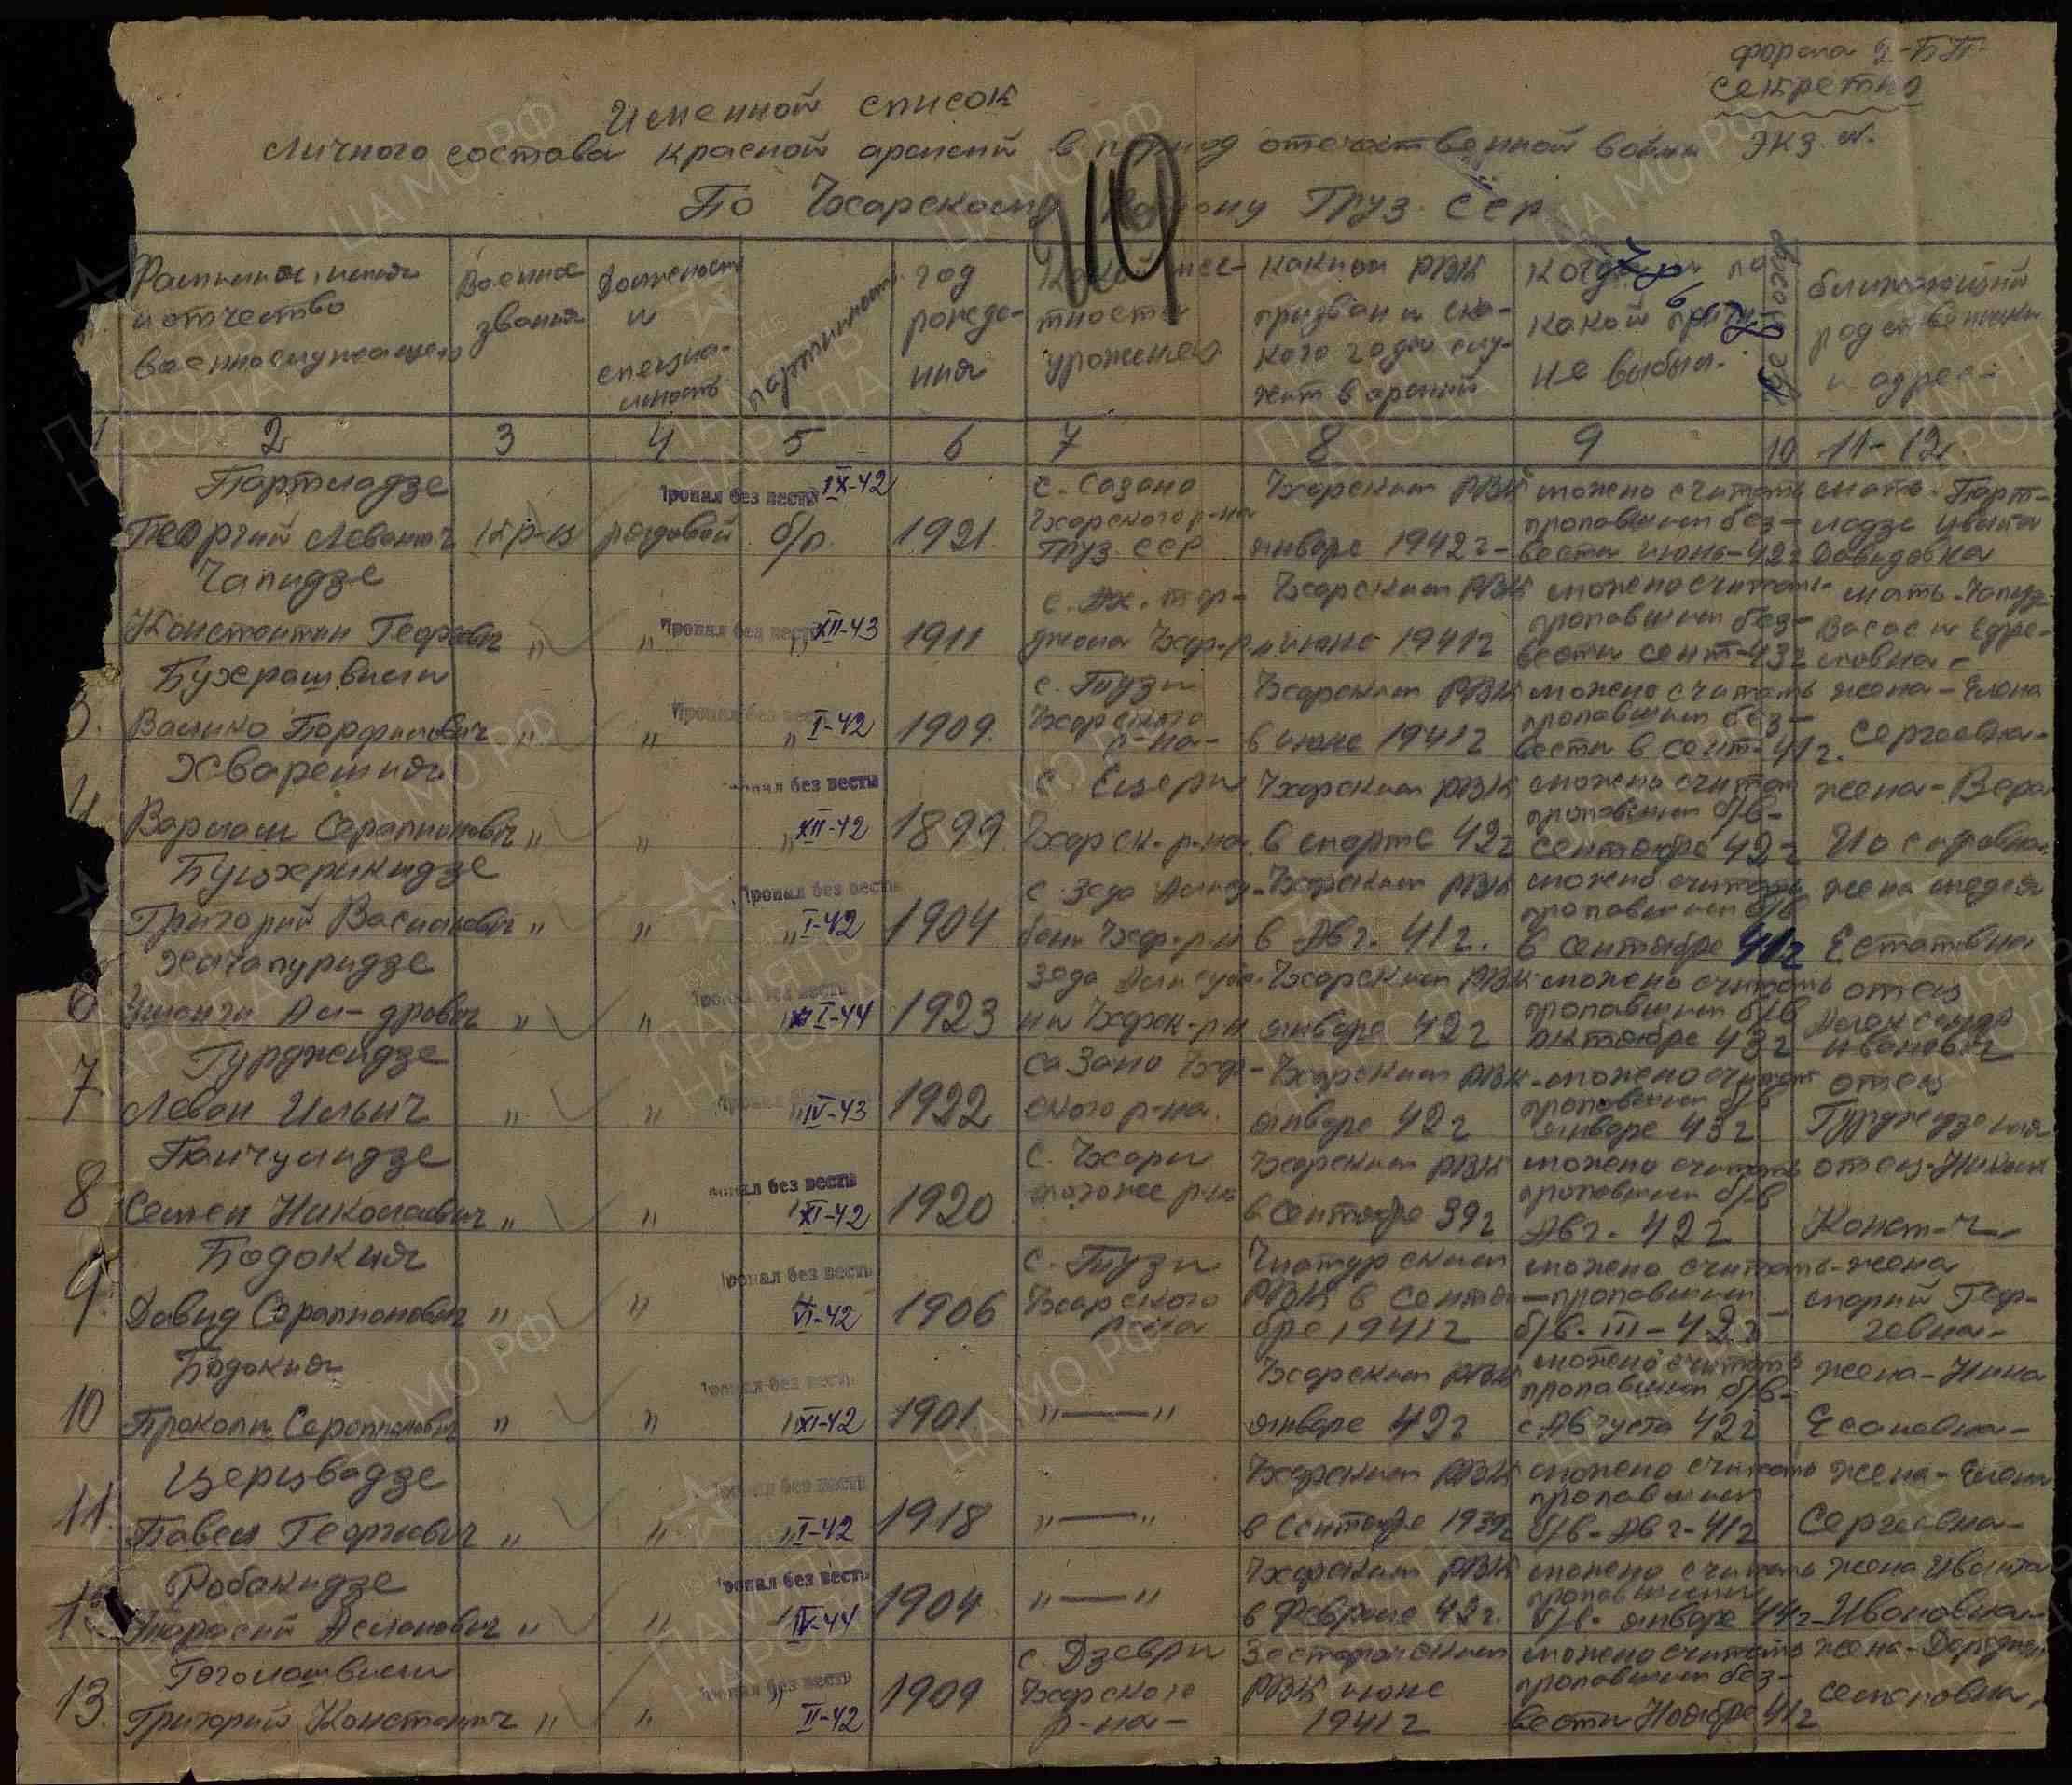 форма 2-БП
секретно
Именной список
личного состава красной армий в период отечественной войны экз. №.
По Чхарскому району Груз. ССР
119
Фамилия, имя
и отчество
военнослужащего
Военное
звания
Должность
и
специа-
льность
партийность
год
рожде-
ния
Какой мес-
тности
уроженец
каким РВК
призван и ска-
кого года слу-
жит в армий
Когда и по
какой причи
не выбыл.
ближающий
родственники
и адрес-
2 3 4 5 6 7 8 9 10 11-12
Партладзе
Георгий Леванич кр-в рядовой б/п. 1921.
Пропал без вести IX-42
с. Сазано
Чхарского р-на
Груз. ССР
Чхарским РВК
январе 1942 г-
можно считать
пропавшим без-
вести июнь-42 г
мать-Парт-
ладзе Цвита
Давидовна
Чапидзе
Константин Георгиевич " " " 1911
Пропал без вести XII-43
джома Чхар-р-н
Чхарским РВК
июне 1941 г
можно считать
пропавшим без-
вести сент-43 г
мать-Чапидз-
3. Бухрашвили
Валико Порфилович " " " 1909.
Пропал без вести I-42
с. Тузи
Чхарского
р-на-
Чхарским РВК
в июне 1941 г
можно считать
пропавшим без-
вести в сент-41 г.
жена-Елена
Сергеевна-
4 Хварешия
Варлам Серапионович " " " 1899
Пропал без вести XII-42
с Ецери
Чхарск-р-на
Чхарским РВК
в марте 42 г
можно считат
пропавшим б/в-
сентябре 42 г
жена-Вера
Иосифовна
Буцхрикидзе
Григорий Василович " " " 1904
Пропал без вести I-42
Чхарским РВК
в Авг. 41 г.
можно считать
пропавшим б/в
в сентябре 41 г
жена
Естатевна
6 Хачапуридзе
Ушанги Ал-дрович " " " 1923
Пропал без вести I-44
Чхарским РВК
январе 42 г
можно считать
пропавшим б/в
октябре 43 г
отец
Александр
Иванович
7 Гурджидзе
Леван Ильич " " " 1922
IV-43
Сазано Чхар-
ского р-на.
Чхарским РВК
январе 42 г
можно считат
пропавшим б/в
январе 43 г
отец
8 Панчулидзе
Семен Николаевич " " " 1920
Пропал без вести XI-42
с. Чхари
тогоже р-на
Чхарским РВК
в Сентябре 39 г
можно считать
пропавшим б/в
Авг. 42 г
отец-Никол
Конст-ч-
9. Бодокия
Давид Серапионович " " " 1906
Пропал без вести VI-42
с. Тузи
Чхарского
р-на
Чиатурским
РВК в сентя-
бре 1941 г
можно считать
пропавшим
б/в-III-42 г
жена
Геор-
гевна-
10 Бодокия
Прокопи Серапионович " " 1901
Пропал без вести XI-42
"——"
Чхарским РВК
январе 42 г
можно считать
пропавшим б/в-
с Августа 42 г
жена-Нина
11. Церцвадзе
Павел Георгиевич " " " 1918
Пропал без вести I-42
"——"
Чхарским РВК
в Сентябре 1939 г
можно считать
пропавшим
б/в-Авг-41 г
жена-Елен
Сергеевна-
12 Робакидзе
Тарасий Асланович " " 1904
Пропал без вести IV-44
"——"
Чхарским РВК
в Феврале 42 г.
можно считать
пропавшим
б/в- январе 44 г
жена Цвита
Ивановна-
13. Гоголашвили
Григорий Констанич " " " 1909
Пропал без вести II-42
с. Дзеври
Чхарского
р-на-
Зестафонским
РВК июне
1941 г
можно считать
пропавшим без-
вести Ноябре 41 г
жена-Дареджан
Семеновна-